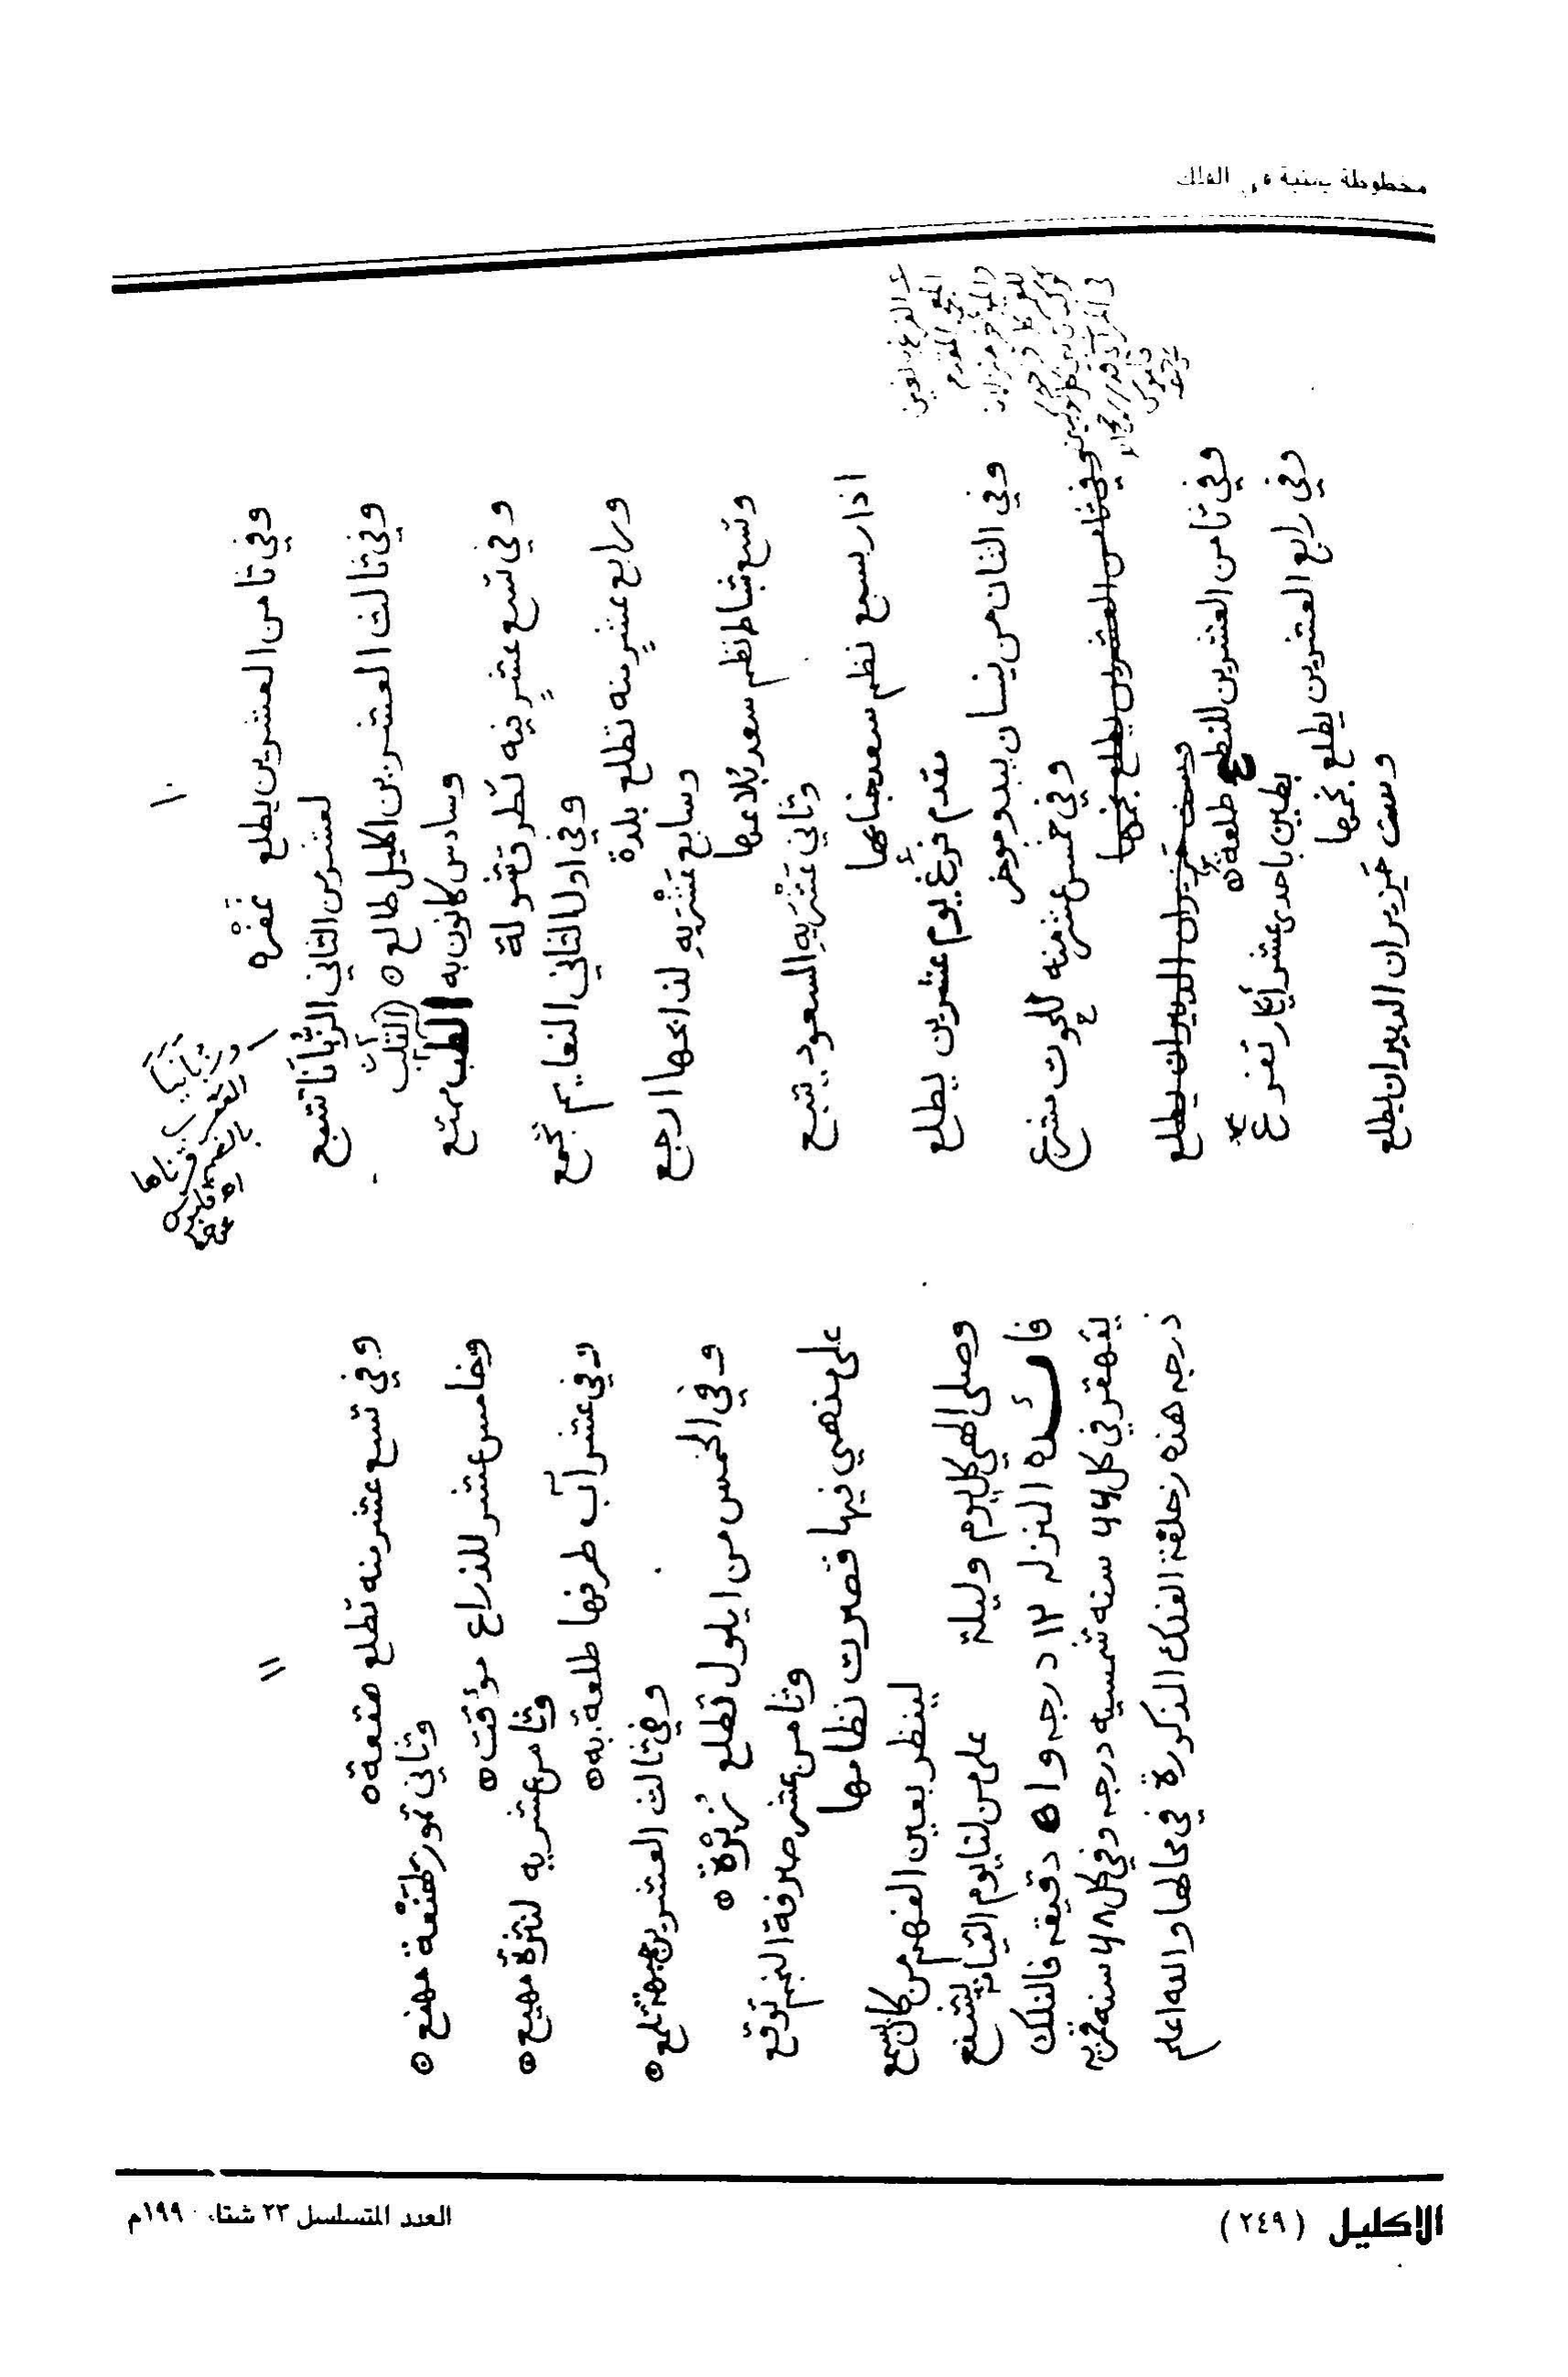 مخطوطة يمنية في الفلك
١٠
وفي ثامن العشرين يطلع غفره
لعشر من الثاني الزبانا تتبع
وفي ثالث العشرين اكليل طالع ٥
وسادس كانون به القلب يمتع
القلب
وفي تسع عشر فيه نظر قشولة
وفي اول الثاني النعايم تجمع
ورابع عشر منه تطلع بلدة
وسابع عشريه لذابحها ارجع
وتسع شباط نظم سعد بلاعها
وثاني عشريه السعود يتبع
اذار بسبع نظم سعد خباها
مقدم فرغ يوم عشرين يطلع
وفي الثان من نيسان يبدو موخر
وفي خمس عشر منه للحوت مشرع
وفي ثامن العشرين يطلع نجمها
وست حزيران الدبران يطلع
وفي ثامن العشرين للنطح طلعة ٥
بطين باحدى عشر أيار تفرع
وفي رابع العشرين يطلع نجمها
وست حزيران الدبران يطلع
١١
وفي تسع عشر منه تطلع هقعة ٥
وثاني تموز لهنعة مهنع ٥
وخامس عشر للذراع مؤقت ٥
وثامن عشريه لنثرة مهيع ٥
وفي عشر آب طرفها طلعة به ٥
وفي ثالث العشرين جبهة تلمع ٥
وفي الخمس من ايلول تطلع زبرة ٥
وثامن عشر صرفة النجم توقع
على مذهبي فيها قصرت نظامها
لينظر بعين الفهم من كان يسمع
وصلى الهي كل يوم وليلة
على من لنا يوم القيامة يشفع
فائده المنزله ١٢ درجه و ٥١ دقيقه فالفلك
يقهقر في كل ٦٦ سنه شمسيه درجه وفي كل ٦٨ سنه قمريه
درجه هذه خلقة الفلك المذكورة في محالها والله اعلم
الاكليل (٢٤٩)
العدد المتسلسل ٢٣ شتاء ١٩٩٠م